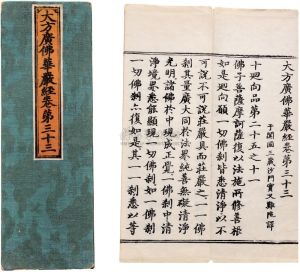 大方廣佛華嚴經卷第三十三
大方廣佛華嚴經卷第三十三
于闐國三藏沙門實叉難陀譯
十迴向品第二十五之十一
佛子菩薩摩訶薩復以法施所修善根
如是迴向願一切佛刹皆悉清淨以不
可說不可說莊嚴具而莊嚴之一一佛
刹其量廣大同於法界純善無礙清淨
光明諸佛於中現成正覺一佛刹中清
淨境界悉能顯現一切佛刹如一佛刹
一切佛刹亦復如是其一一刹悉以等